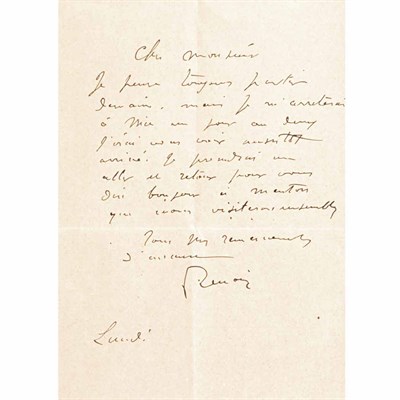 Cher monsieur
Je pense toujours partir
demain. mais je m'arreterai
à Nice un jour ou deux
J'irai vous voir aussitot
arrivé. Je prendrai un
aller et retour pour vous
dire bonjour à menton
que nous visiterons ensemble
Tous mes remerciements
d'avance
Renoir
Lundi